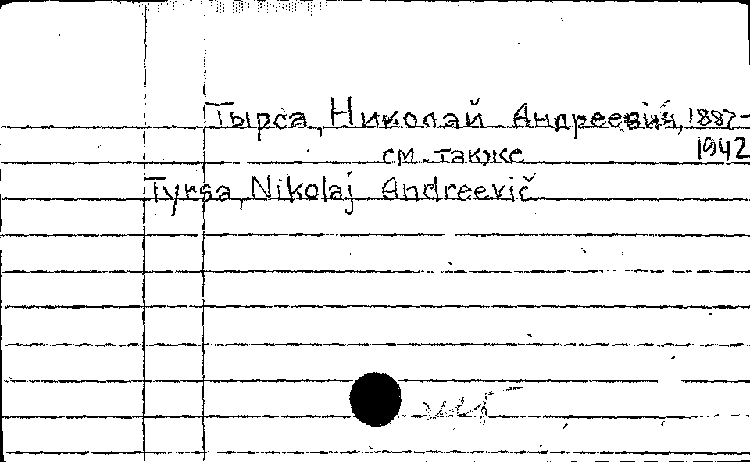 Тырса, Николай Андреевич, 1887-
1942
см. также
Tyrsa, Nikolaj Andreevič